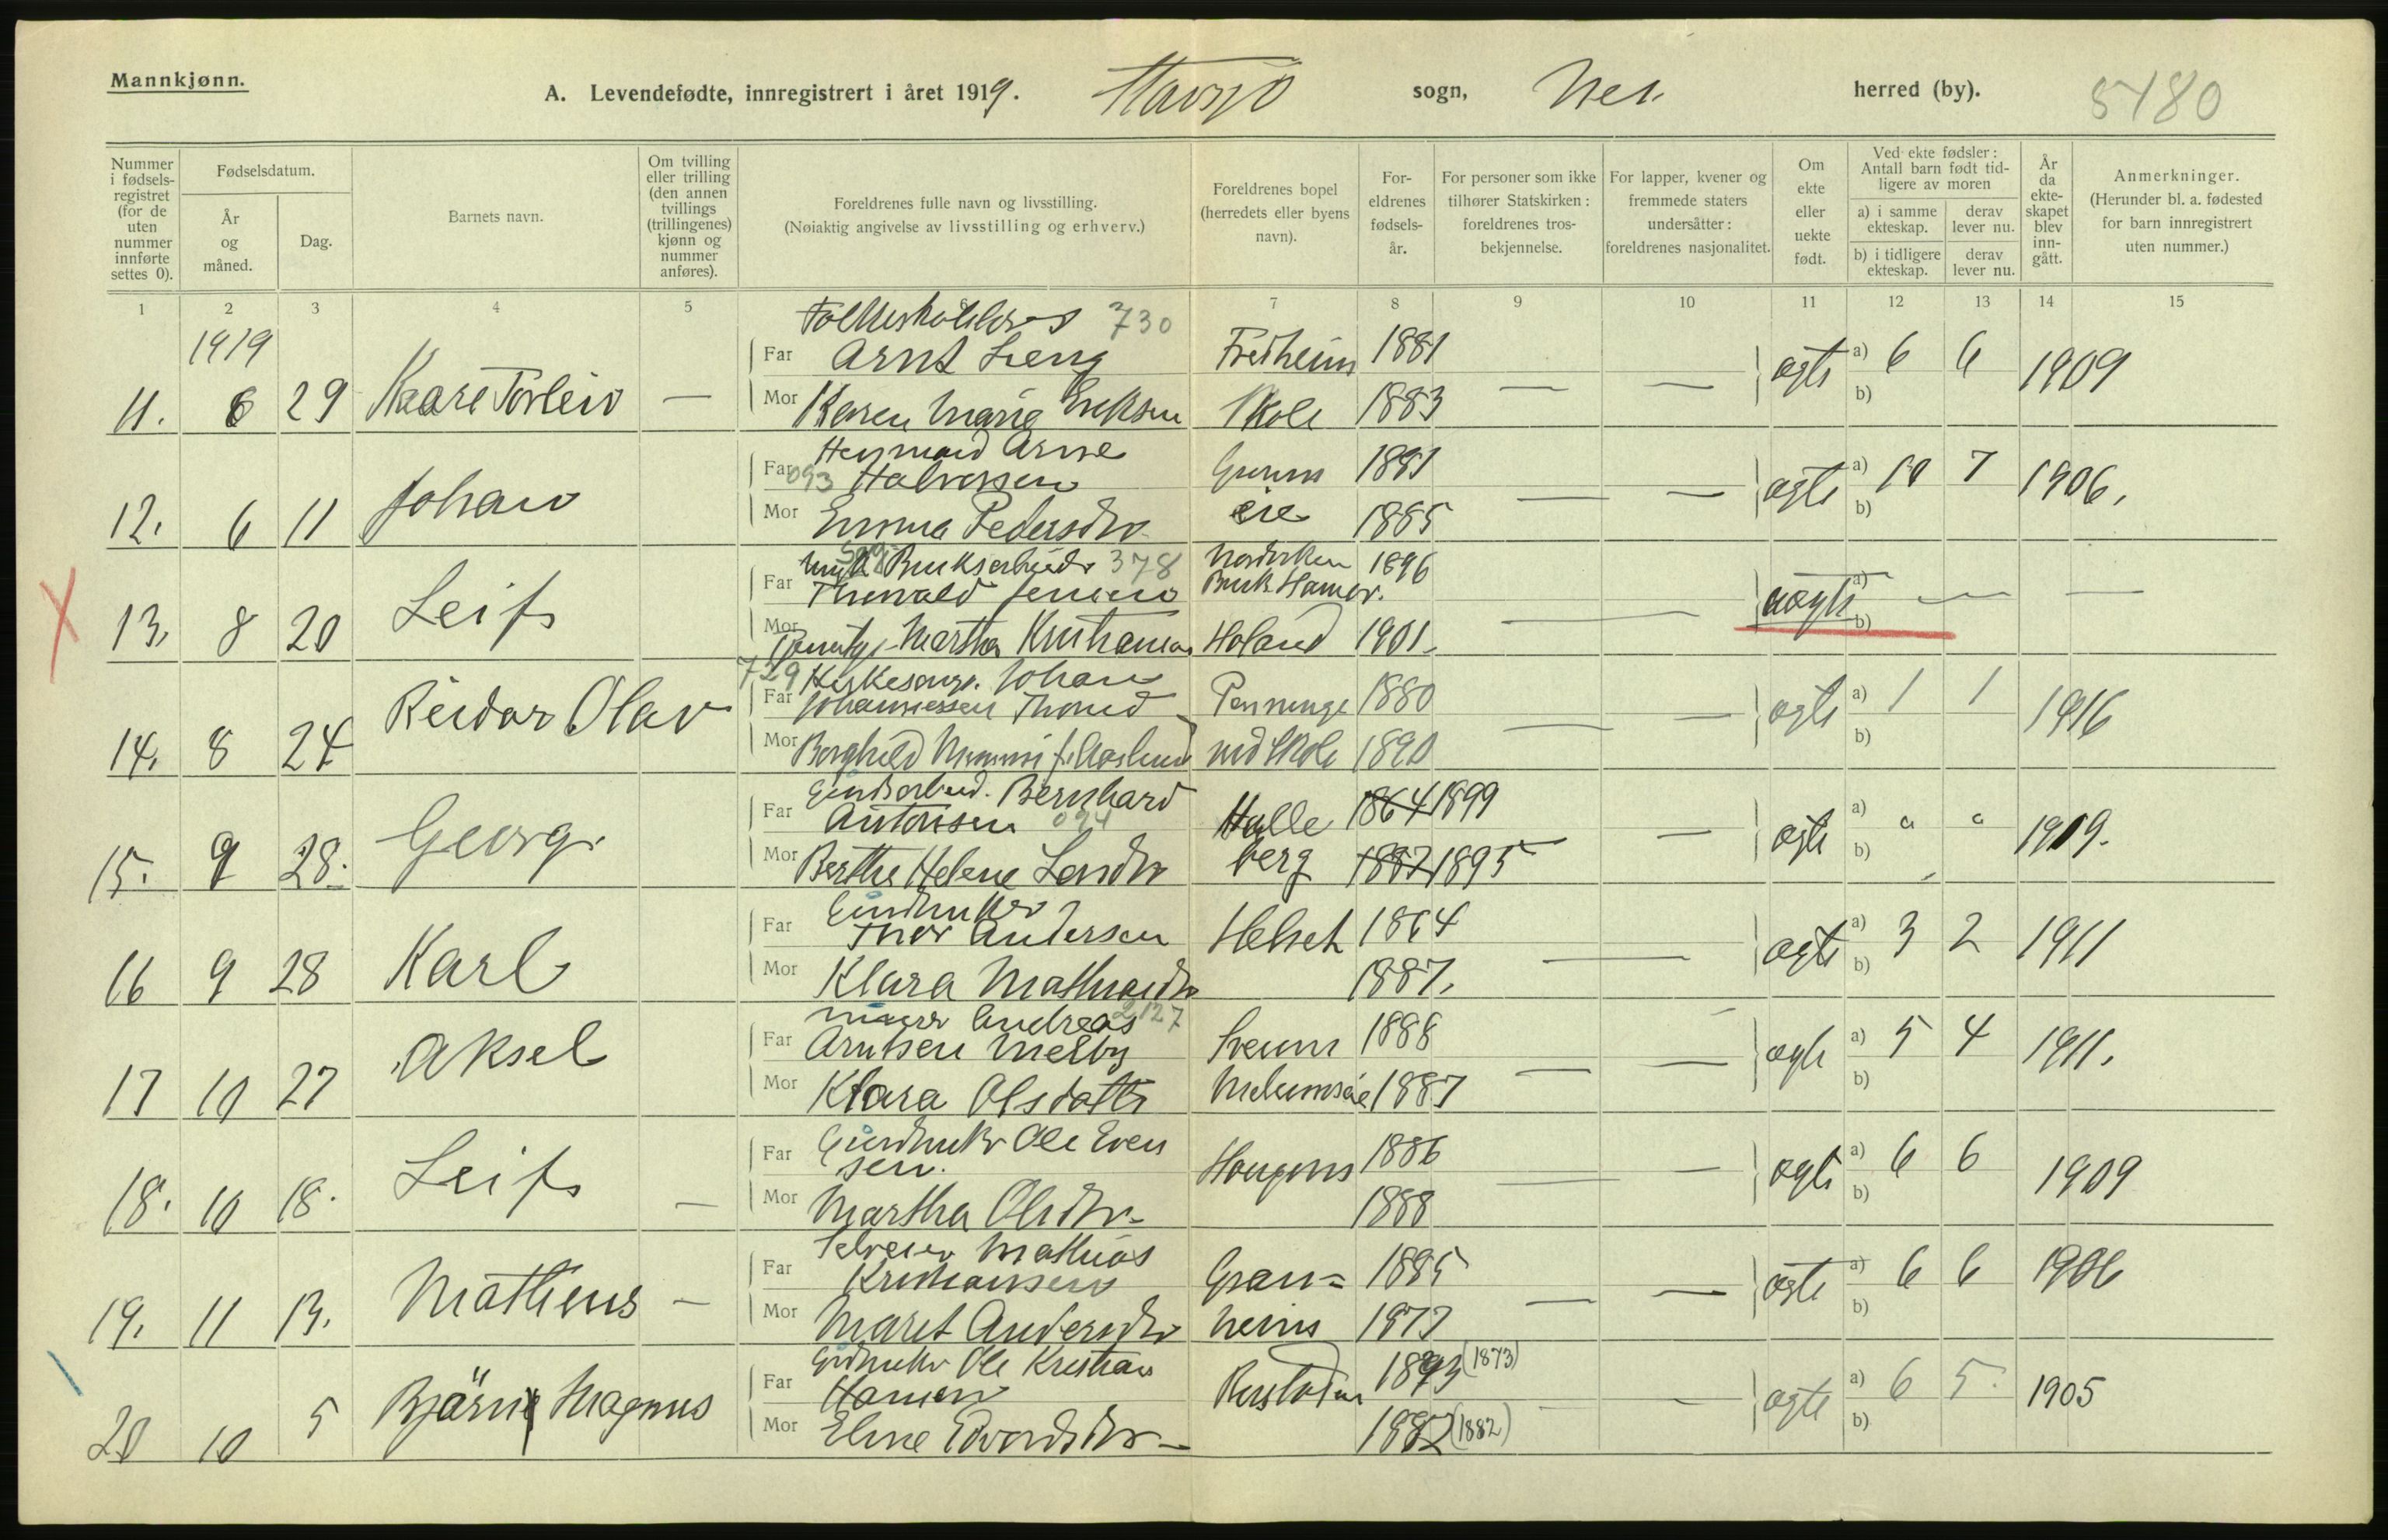 Mannkjønn.
A. Levendefødte, innregistrert i året 1919. Stavsjø sogn, Nes. herred (by). 5180
Nummer i fødselsregistret (for de uten nummer innførte settes 0).
Fødselsdatum.
År og måned.
Dag.
Barnets navn.
Om tvilling eller trilling (den annen tvillings (trillingenes) kjønn og nummer anføres).
Foreldrenes fulle navn og livsstilling.
(Nøiaktig angivelse av livsstilling og erhverv.)
Foreldrenes bopel (herredets eller byens navn).
Foreldrenes fødselsår.
For personer som ikke tilhører Statskirken: foreldrenes trosbekjennelse.
For lapper, kvener og fremmede staters undersåtter: foreldrenes nasjonalitet.
Om ekte eller uekte født.
Ved ekte fødsler: Antall barn født tidligere av moren
a) i samme ekteskap. derav lever nu.
b) i tidligere ekteskap. derav lever nu.
År da ekteskapet blev inngått.
Anmerkninger.
(Herunder bl. a. fødested for barn innregistrert uten nummer.)
1 2 3 4 5 6 7 8 9 10 11 12 13 14 15
1919
730
Far Arnt Lieng Fredheim 1881
11. 6 29 Kaare Torleiv — Mor Karen Marie Eriksen Skole 1883 — — ægte a) 6 6 b) 1909
Husmand Arne
Far 093 Halvorsen Grum 1881
12. 6 11 Johan Mor Emma Pedersdtr eie 1885 — — ægte a) 10 7 b) 1906.
Bruksarbeid. 378 1896
Far Thorvald Jensen Bruk Hamar.
13. 8 20 Leif Mor Martha Kristiansen Holand 1901. — — uægte a) b) — —
729 Kirkesang. Johan
Far Johannessen Thorud Penninge 1880
14. 8 24 Reidar Olav Mor Borghild ved Skole 1890 — — ægte a) 1 1 b) 1916
Bernhard
Far Antonsen 094 Halle 1864 1899
15. 9 28. Georg. Mor Berthe Helene berg 1887 1895 — — ægte a) " " b) 1919.
Gaardbruker
Far Thor Andersen Helset 1864
16 9 28 Karl Mor Klara 1887. — — ægte a) 3 2 b) 1911
Andreas 2127
Far Arntsen Melby Sveum 1888
17 10 27 Aksel Mor Klara Olsdatter 1887 — — ægte a) 5 4 b) 1911.
Gaardbruker Ole Even
Far sen. 1886
18. 10 18. Leif — Mor Martha Olsdtr. 1888 — — ægte a) 6 6 b) 1909
Selveier Mathias
Far Kristiansen Gran= 1885
19. 11 13. Matheus — Mor Maret Andersdtr heim 1877 — — ægte a) 6 6 b) 1906
Gdbruker Ole Kristian
Far Hansen 1893 (1873)
20 10 5 Bjärne Magnus Mor Eline Edvardsdtr 1882 (1882) — — ægte a) 6 5 b) 1905